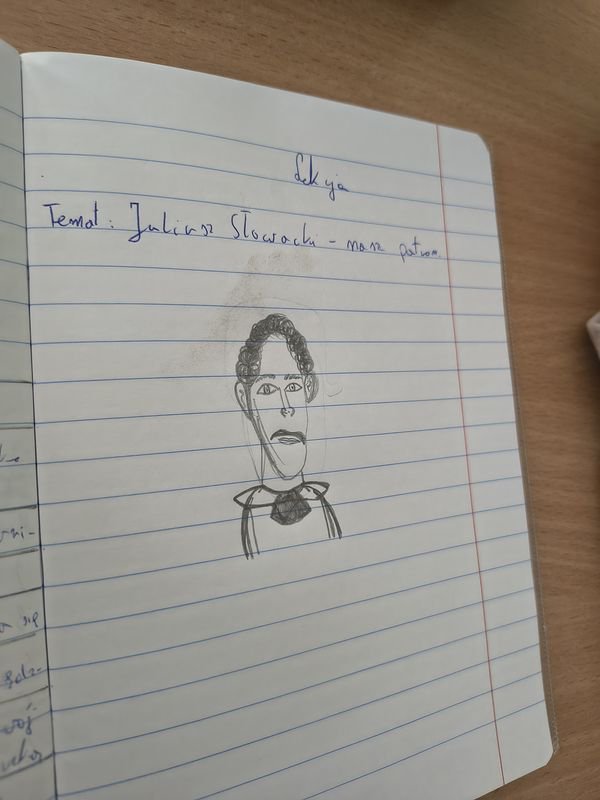 Lekcja
Temat: Juliusz Słowacki - nasz patron.
ni-
się
gdz-